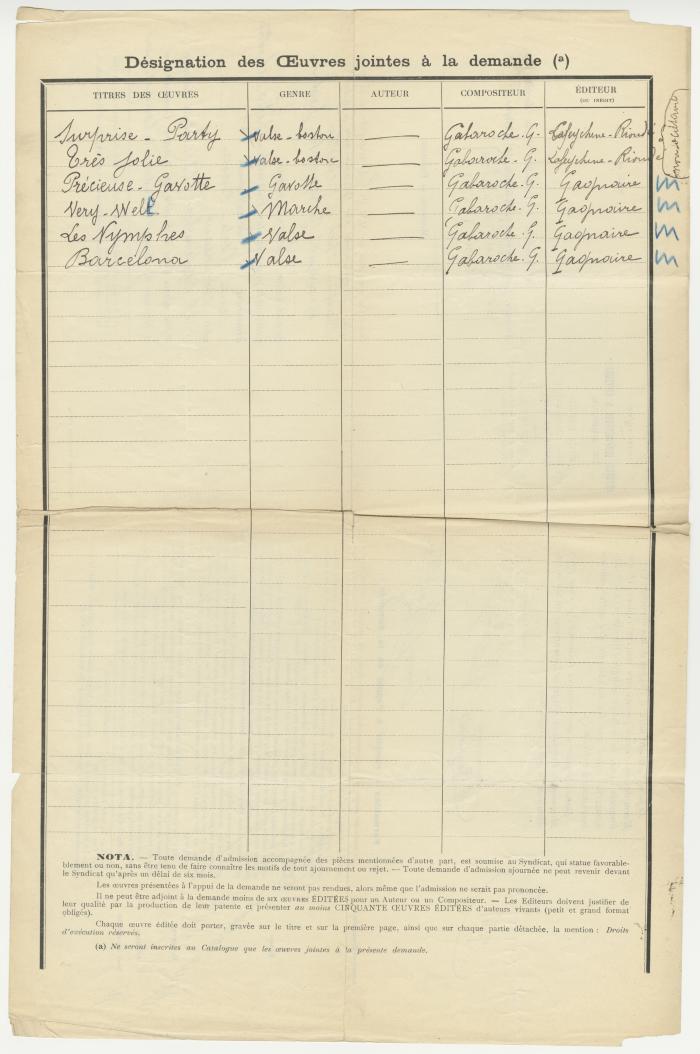 Désignation des Œuvres jointes à la demande (a)
TITRES DES ŒUVRES GENRE AUTEUR COMPOSITEUR ÉDITEUR
(OU INÉDIT)
Surprise - Party Valse - boston — Gabaroche. G.
Très Jolie Valse - boston — Gabaroche - G.
Précieuse - Gavotte Gavotte — Gabaroche. G. Gagnaire
Very - Well Marche — Gabaroche. G. Gagnaire
Les Nymphes Valse — Gabaroche. G. Gagnaire
Barcelona Valse — Gabaroche. G. Gagnaire
NOTA. — Toute demande d'admission accompagnée des pièces mentionnées d'autre part, est soumise au Syndicat, qui statue favorable-
blement ou non, sans être tenu de faire connaître les motifs de tout ajournement ou rejet. — Toute demande d'admission ajournée ne peut revenir devant
le Syndicat qu'après un délai de six mois.
Les œuvres présentées à l'appui de la demande ne seront pas rendues, alors même que l'admission ne serait pas prononcée.
Il ne peut être adjoint à la demande moins de six ŒUVRES ÉDITÉES pour un Auteur ou un Compositeur. — Les Editeurs doivent justifier de
leur qualité par la production de leur patente et présenter au moins CINQUANTE ŒUVRES ÉDITÉES d'auteurs vivants (petit et grand format
obligés).
Chaque œuvre éditée doit porter, gravée sur le titre et sur la première page, ainsi que sur chaque partie détachée, la mention : Droits
d'exécution réservés.
(a) Ne seront inscrites au Catalogue que les œuvres jointes à la présente demande.